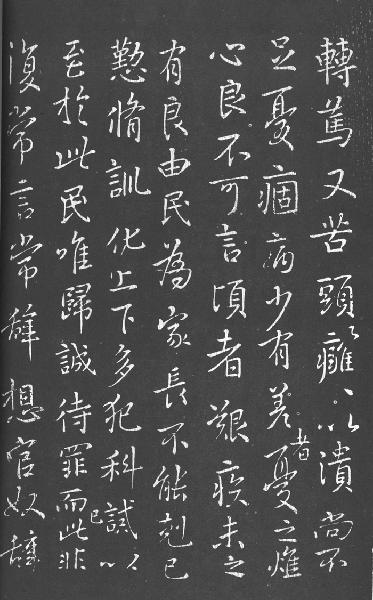 轉篤又苦頭〻癰〻以潰尚不
足憂痼病少有差者憂之燋
心良不可言頃者艱疾未之
有良由民為家長不能剋己
懃脩訓化上下多犯科誡以
至於此民唯歸誠待罪而已此非
復常言常辭想官奴辭